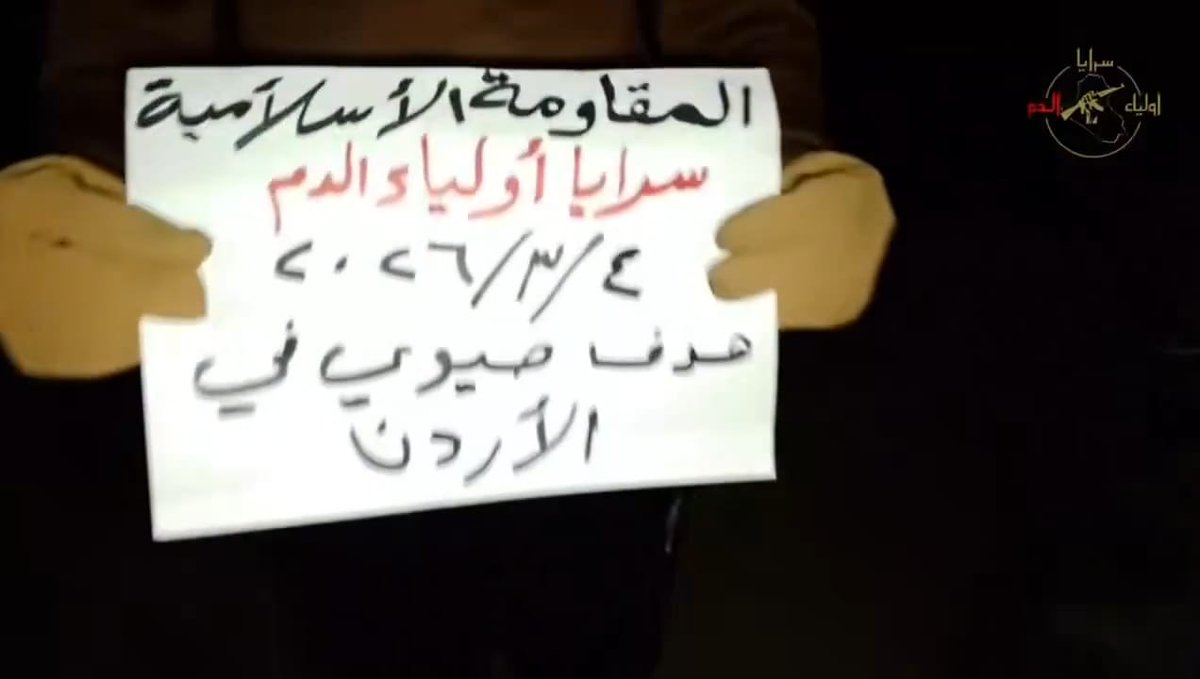 المقاومة الأسلامية
سرايا أولياء الدم
٢٠٢٦/٣/٤
هدف حيوي في
الأردن
سرايا
أولياء الدم